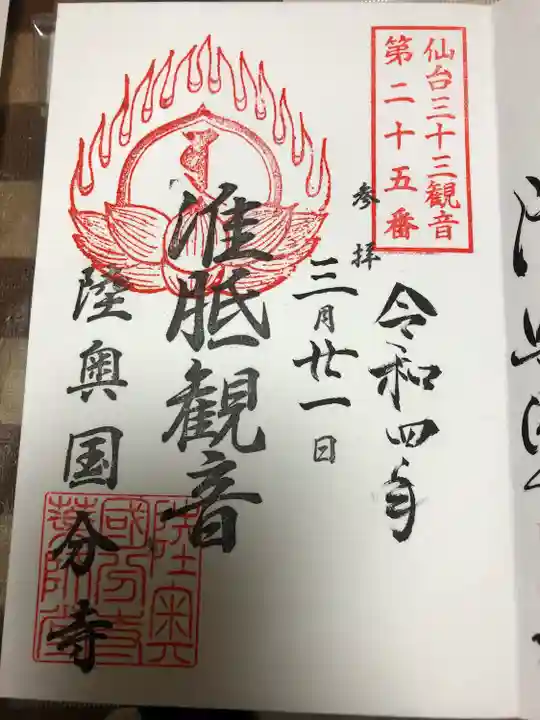 仙台三十三観音
第二十五番
令和四年
参拝
三月廿一日
准胝観音
陸奥国分寺
陸奥
國分寺
薬師堂